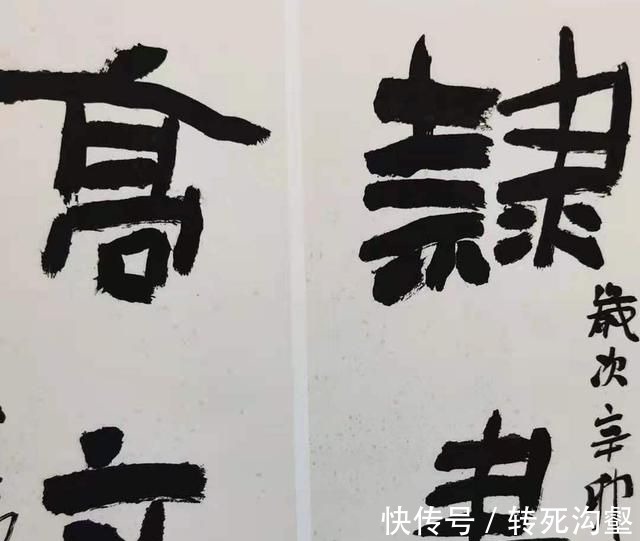 隸
歲次辛卯
高
快传号 / 转死沟壑